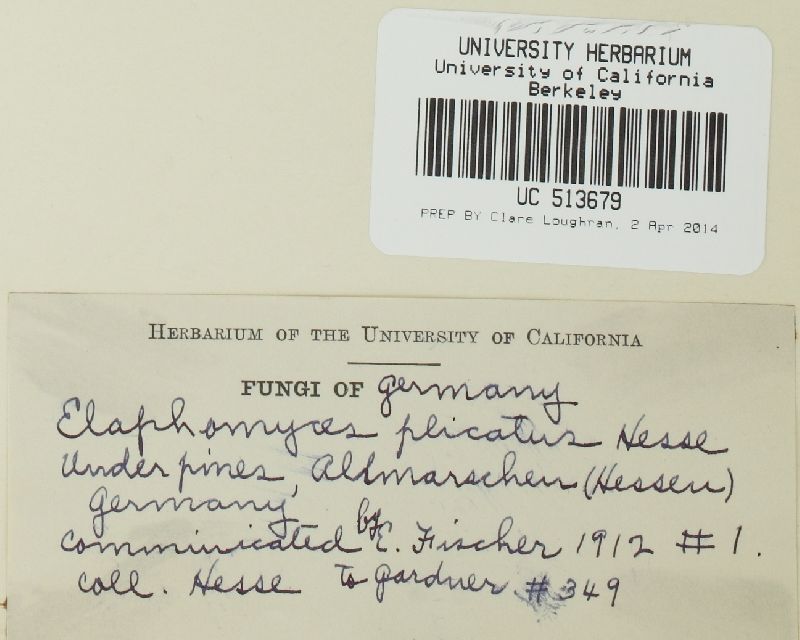 UNIVERSITY HERBARIUM
University of California
Berkeley
UC 513679
PREP BY Clare Loughran, 2 Apr 2014
HERBARIUM OF THE UNIVERSITY OF CALIFORNIA
FUNGI OF Germany
Elaphomyces plicatus Hesse
Under pines, Altmarschen (Hessen)
Germany
communicated by E. Fischer 1912 # 1.
coll. Hesse To Gardner # 349